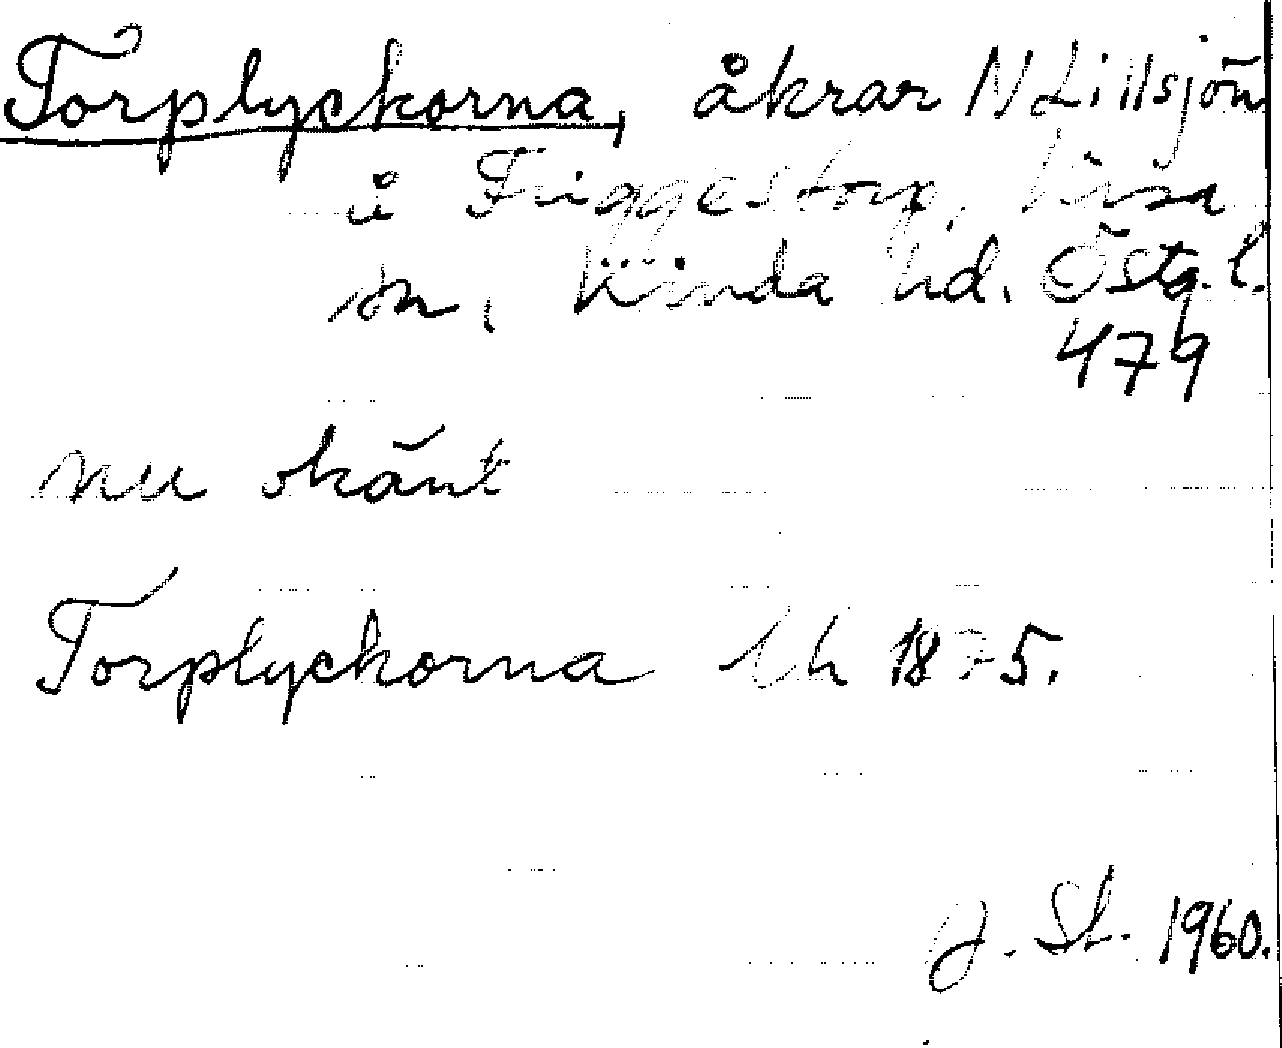 Torplyckorna, åkrar N Lillsjön
i Friggestorp, Kisa
sn, Kinda hd. Östg. l.
479
nu okänt
Torplyckorna Lh 1875.
J. St. 1960.